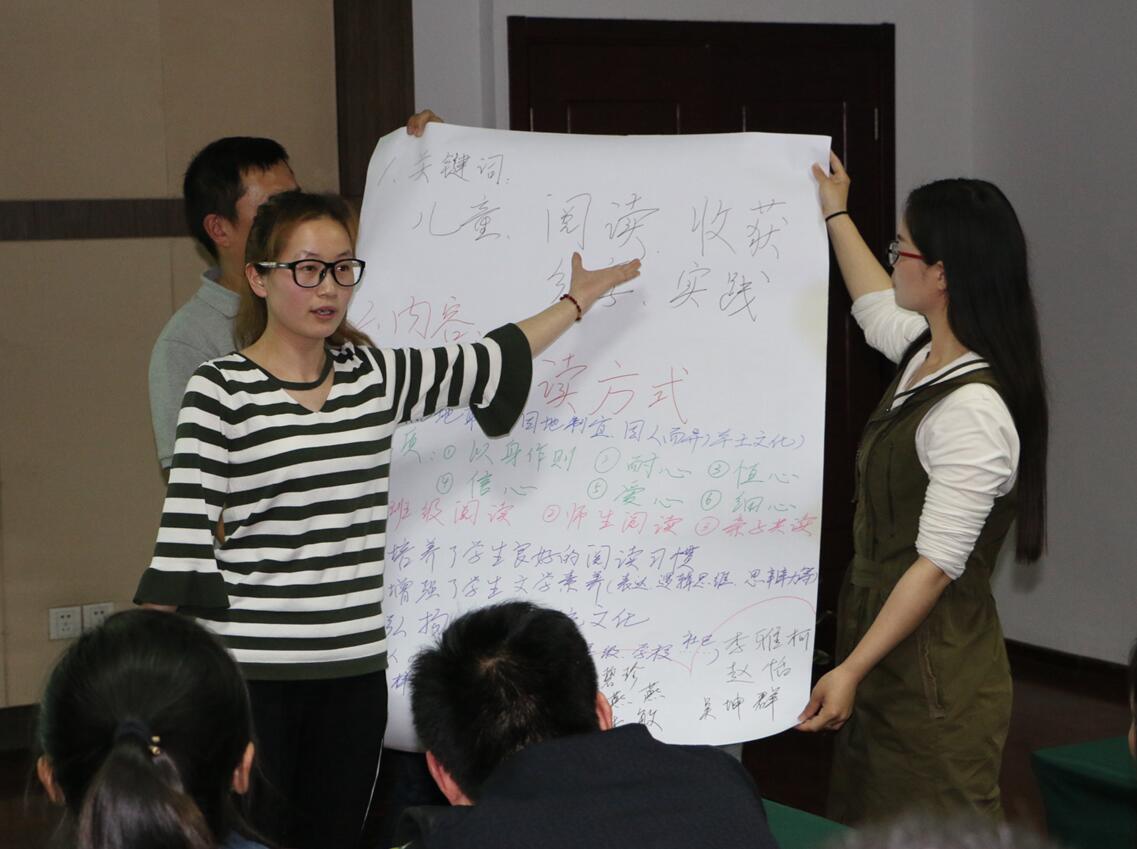 1、关键词:
儿童、阅读、收获
实践
二、内容:
读方式
因地制宜、因人而异)本土文化)
① 以身作则 ② 耐心 ③ 恒心
④ 信心 ⑤ 爱心 ⑥ 细心
班级阅读 ②师生阅读 ③亲子共读
培养了学生良好的阅读习惯
增强了学生文学素养(表达、逻辑思维、思辩力等)
弘扬 文化
学校 李雅柯
碧珍 赵恬
燕 吴坤群
敏